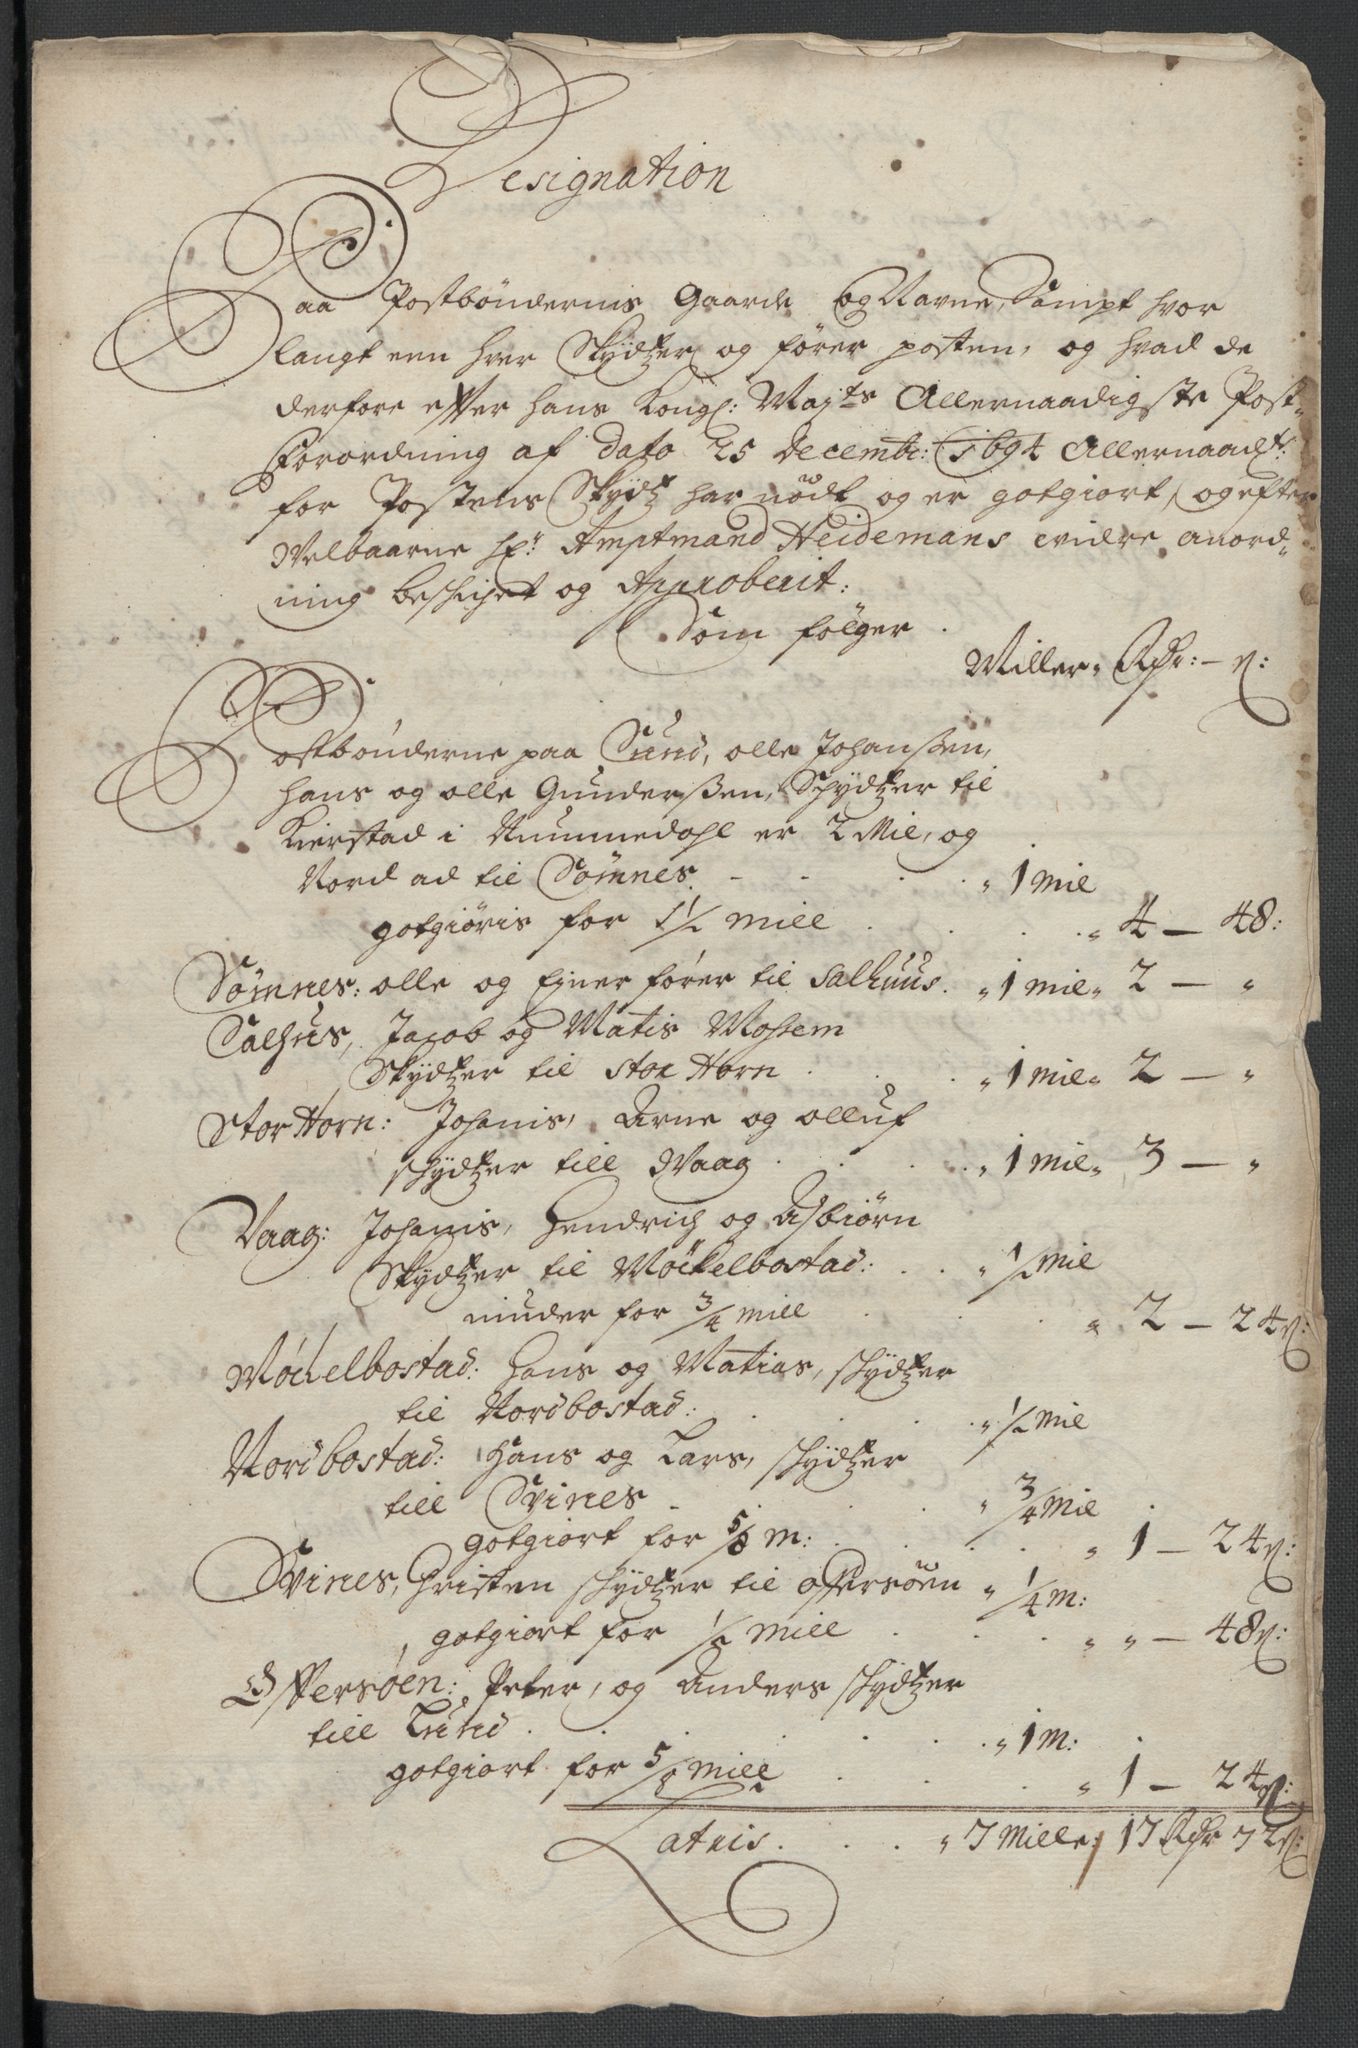 Designation
Paa Postböndernis Gaarde Og Navne, Sampt hvor
langt een hver Skydtzer og förer posten, og hvad de
derfore efter hans Kongl: Maj:ts Allernaadigste Post-
Forordning af dato 25 Decembr: 1694 Allernaadt:
for Postens Skydtz har nödt og er gotgiort, og efter
Velbaarne Hr: Amptmand Heidemans widre anord-
ning beskichet og Approberit:
Som fölger.
Miller. Rdr: – ß:
Postbönderne paa Sund, olle Johanßen,
Hans og olle Gunderßen, Schydtzer til
Kierstad i Nummedahl er 2 Mil, og
Nord ad til Sömnes. - - . . " 1 Mil
gotgiöris for 1½ Mill . . . . " 4 — 48:
Sömnes: olle og Ejner förer til Salhuus. " 1 mil " 2 — "
Salhus, Jacob og Matis Mohsem
Skydtzer til Stor Horn . . . " 1 mil " 2 — "
Stor Horn: Johanis, Arne og olluf
schydtzer till Vaag . . . . " 1 mil " 3 — "
Vaag: Johanis, Hendrich og Asbiörn
Skydtzer til Möckelbostad: . . " ½ Mil
niuder for ¾ mill . . . " 2 — 24ß:
Möckelbostad: Hans og Matias, schydtzer
til Nordbostad: . . . . " ½ Mil
Nordbostad: Hans og Lars, schydtzer
till Svines - . . . " ¾ Mil .
gotgiort for 5/8 M: . . . . " 1 — 24ß:
Svines, Christen schydtzer til offersöen " ¼ M:
gotgiort for ½ Mill . . . " " — 48ß:
Offersöen: Peter, og Anders schydtzer
till Lund . . . . . " 1 M: .
gotgiort for 5/8 Mill . . . " 1 — 24ß:
Lateris. . . . " 7 Mille / 17 Rdr 72ß: